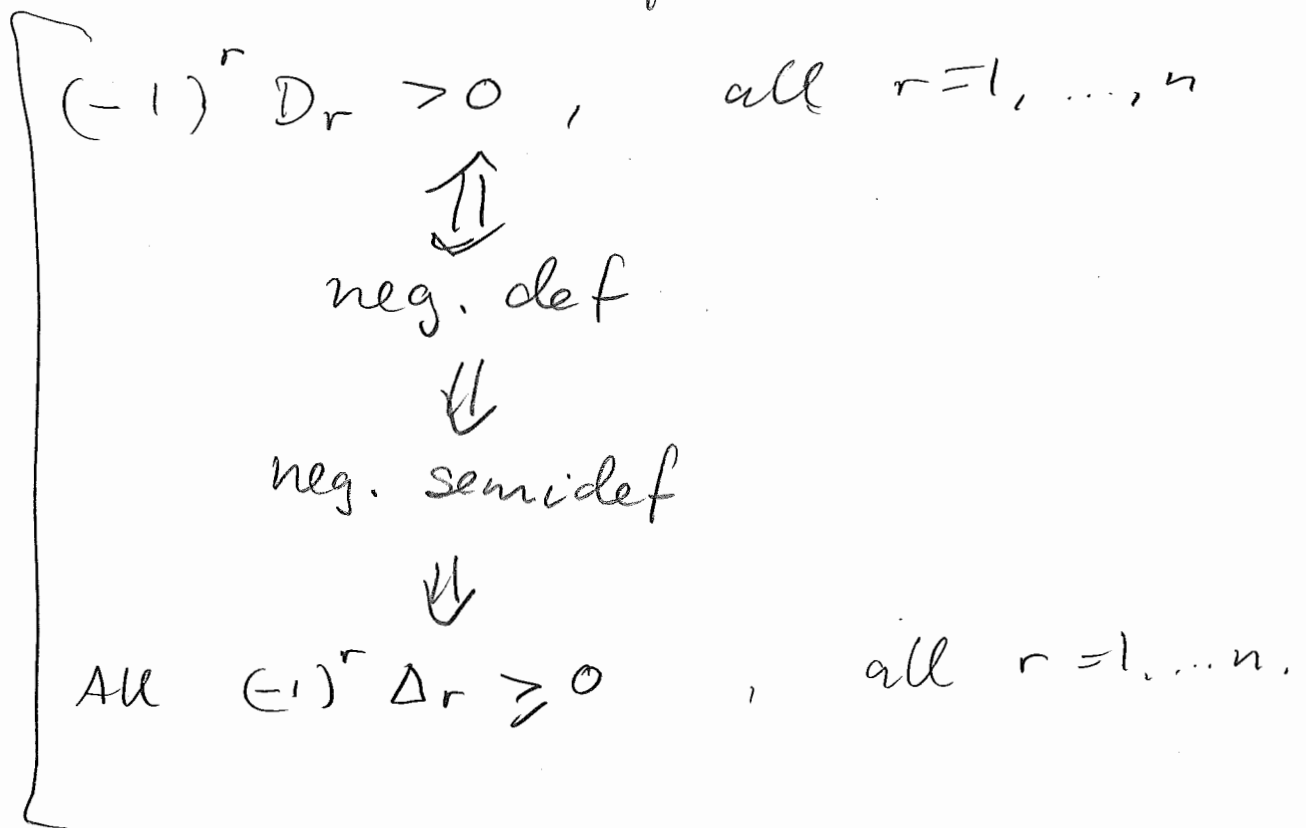 (-1)^r D_r > 0 , all r = 1, ..., n
⇕
neg. def
⇓
neg. semidef
⇓
All (-1)^r Δ_r ≥ 0 , all r = 1, ... n.